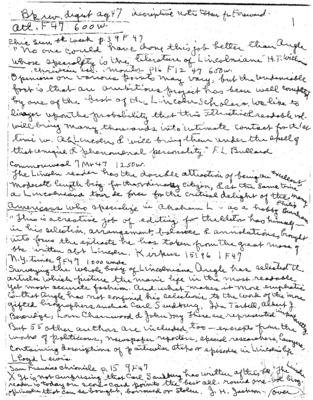 Bk rev. digest ag 47 descriptive notes than go Forward. 1
Atl. F 47 600w.
Chic Sun bk week p 3 9 F 47
"No one could have done this job better than Angle
whose specialty is the literature of Lincolniana" H.T.
Christian Sci. monitor p16 F12 47 600w.
Opinions on various points may vary, but the undeniable
fact is that an ambitious project has been well compiled
by one of the best of the Lincoln Scholars. We like to
linger upon the probability that this illustrated readable vol.
will bring many thousands into intimate contact for the 1st
time w. Ab Lincoln & will bring them under the spell of
that unique & phenomenal personality. F.L. Bullard
Commonweal 7 Mr 47 1250w.
The Lincoln reader has the double attraction of being an excellent
moderate length biog. for the ordinary citizen, & at the same time
a Lincolniana for the critical delight of the many
Americans who specialize in Abraham L. as a hobby
"This is a creative job of editing for the editor has himself
in his selection, arrangement, balance & annotations, brought
into focus the episodes he has taken from the great mass of
written abt Lincoln. Kirkus 15:196 1 F 47
N.Y. times 9 F 47 1000 words
Surveying the whole body of Lincolniana Angle has selected the
articles which picture the man's life in the most readable
yet most accurate fashion. And what makes it more emphatic
is that Angle has not confined his selections to the work of the more
gifted biographers such as Carl Sandburg, Ida Tarbell, Albert J.
Beveridge, Lord Charnwood & John Jay. These are represented
But 55 other authors are included too - excerpts from the
works of politicians, newspaper reporters, special researchers, lawyers,
containing descriptions of particular steps or episodes in Lincoln's life
Lloyd Lewis
San Francisco chronicle p 15 9 F 47
It is not surprising that Carl Sandburg has written after the "This
reader is today on score-card points the best all-round one-vol. biog.
of Lincoln that can be bought, borrowed or stolen. J.H. Jackson over